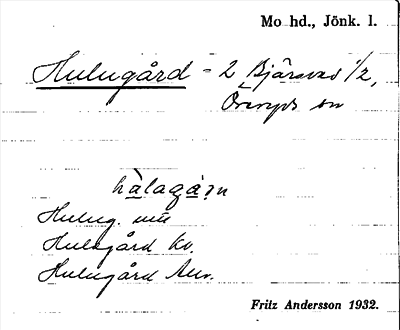 Mo hd., Jönk. l.
Hulugård - 2 Bjärsved 1/2,
Öreryds sn
hàlagá:n
Hulug. mū
Hulugård Kv.
Hulugård
Fritz Andersson 1932.